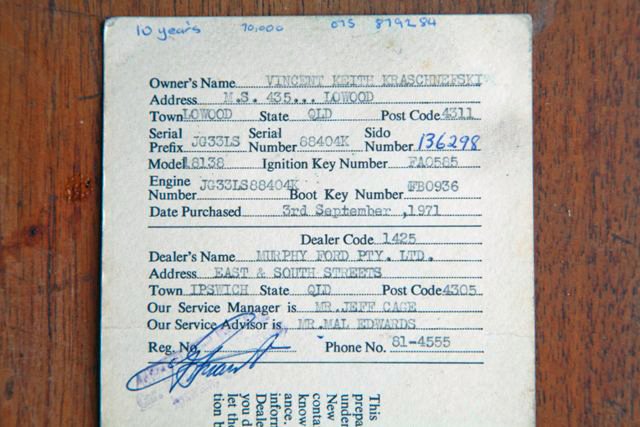 10 years 70,000 075 879284
Owner's Name VINCENT KEITH KRASCHNEFSKI
Address M.S. 435... LOWOOD
Town LOWOOD State QLD Post Code 4311
Serial Prefix JG33LS Serial Number 88404K Sido Number 136298
Model 18138 Ignition Key Number FA0585
Engine Number JG33LS88404K Boot Key Number FB0936
Date Purchased 3rd September ,1971
Dealer Code 1425
Dealer's Name MURPHY FORD PTY. LTD.
Address EAST & SOUTH STREETS
Town IPSWICH State QLD Post Code 4305
Our Service Manager is MR.JEFF CAGE
Our Service Advisor is MR.MAL EDWARDS
Reg. No. Phone No. 81-4555
This
prepa
under
New
conta
know
ance.
inform
Deale
you d
let th
tion b